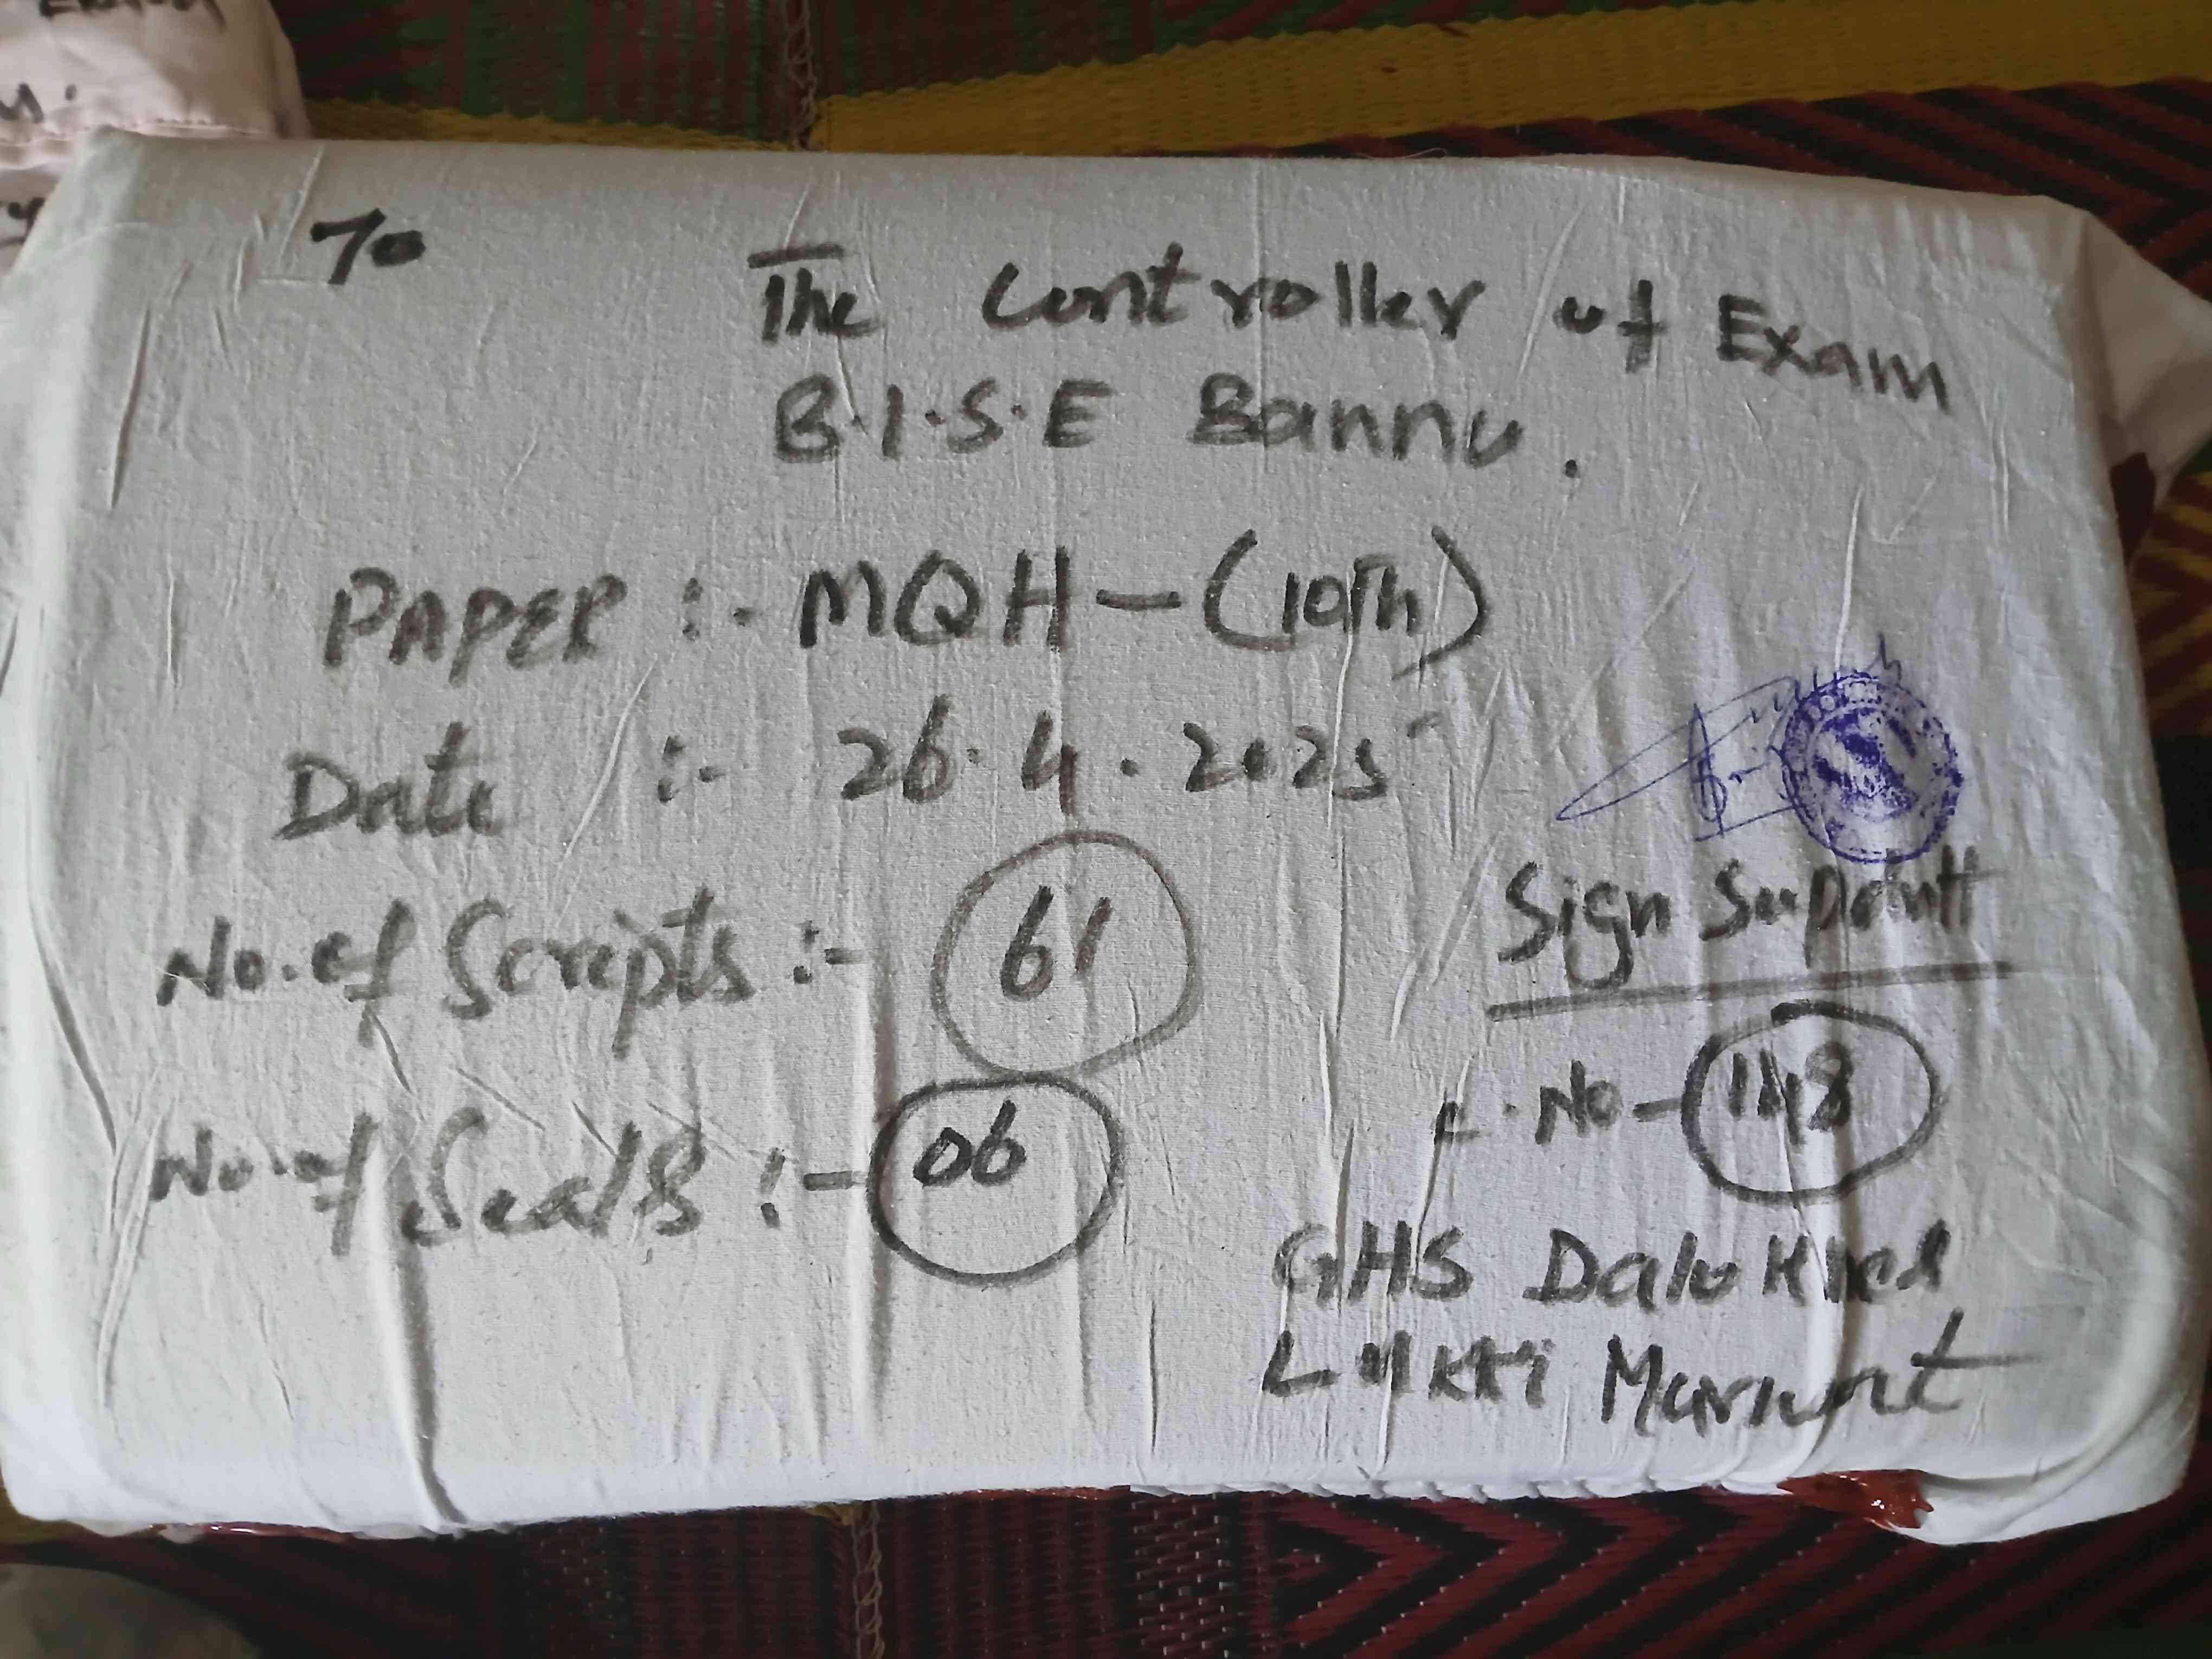 To
The Controller of Exam
B.I.S.E Bannu.
PAPER :- MQH - (10Th)
Date :- 26.4.2025
No. of Scripts :- 61
No. of Seals :- 06
Sign Supdntt
C. No - 148
GHS Dalo Khel
Lakki Marwat